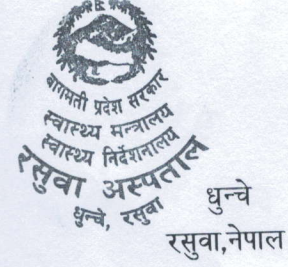 बागमती प्रदेश सरकार
स्वास्थ्य मन्त्रालय
स्वास्थ्य निर्देशनालय
रसुवा अस्पताल
धुन्चे, रसुवा
धुन्चे
रसुवा,नेपाल